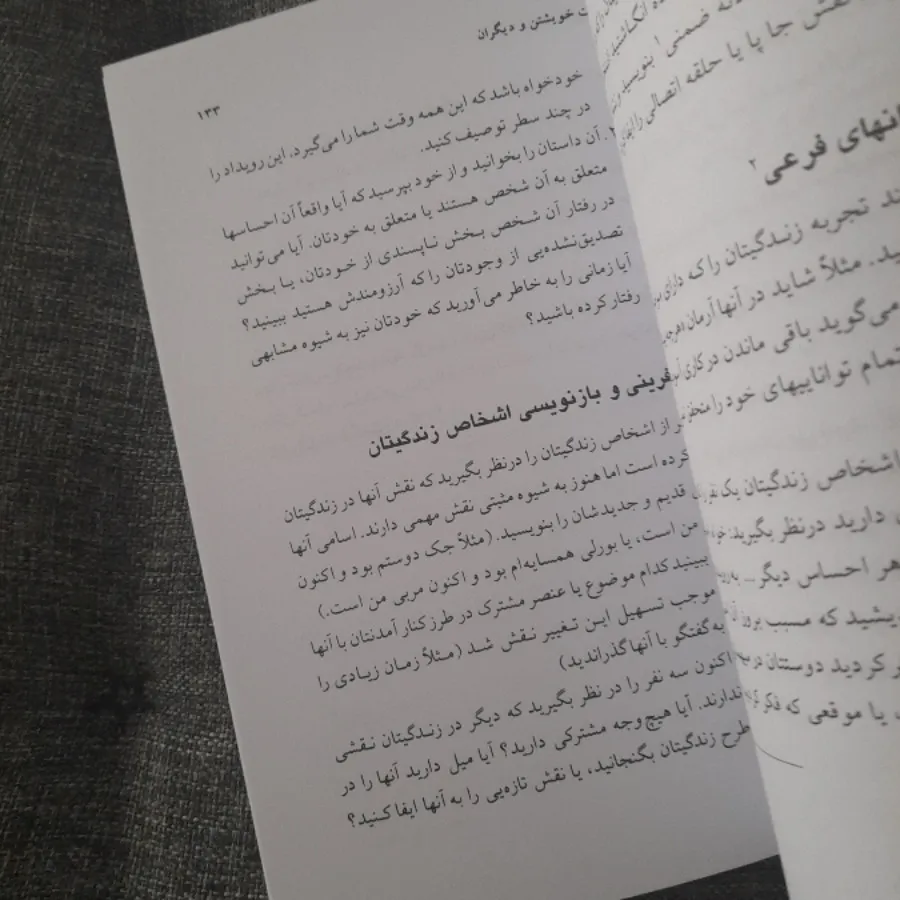 خویشتن و دیگران
۱۳۳
خودخواه باشد که این همه وقت شما را می‌گیرد، این رویداد را
در چند سطر توصیف کنید.
۲. آن داستان را بخوانید و از خود بپرسید که آیا واقعاً آن احساسها
متعلق به آن شخص هستند یا متعلق به خودتان. آیا می‌توانید
در رفتار آن شخص بخش ناپسندی از خودتان، یا بخش
تصدیق‌نشده‌یی از وجودتان را که آرزومندش هستید ببینید؟
آیا زمانی را به خاطر می‌آورید که خودتان نیز به شیوه مشابهی
رفتار کرده باشید؟
و بازنویسی اشخاص زندگیتان
از اشخاص زندگیتان را درنظر بگیرید که نقش آنها در زندگیتان
کرده است اما هنوز به شیوه مثبتی نقش مهمی دارند. اسامی آنها
قدیم و جدیدشان را بنویسید. (مثلاً جک دوستم بود و اکنون
من است، یا بورلی همسایه‌ام بود و اکنون مربی من است.)
ببینید کدام موضوع یا عنصر مشترک در طرز کنار آمدنتان با آنها
موجب تسهیل این تغییر نقش شد (مثلاً زمان زیادی را
به گفتگو با آنها گذراندید)
اکنون سه نفر را در نظر بگیرید که دیگر در زندگیتان نقشی
ندارند. آیا هیچ وجه مشترکی دارید؟ آیا میل دارید آنها را در
طرح زندگیتان بگنجانید، یا نقش تازه‌یی را به آنها ایفا کنید؟
ضمنی ۱ بنویسید
نقش جا پا یا حلقه اتصالی را
فرعی ۲
تجربه زندگیتان را که دارای
مثلاً شاید در آنها آرمان
می‌گوید باقی ماندن در کاری
تمام تواناییهای خود را
اشخاص زندگیتان یک نفر
دارید درنظر بگیرید:
هر احساس دیگر ...
که مسبب بروز
کردید دوستتان در
یا موقعی که فکر